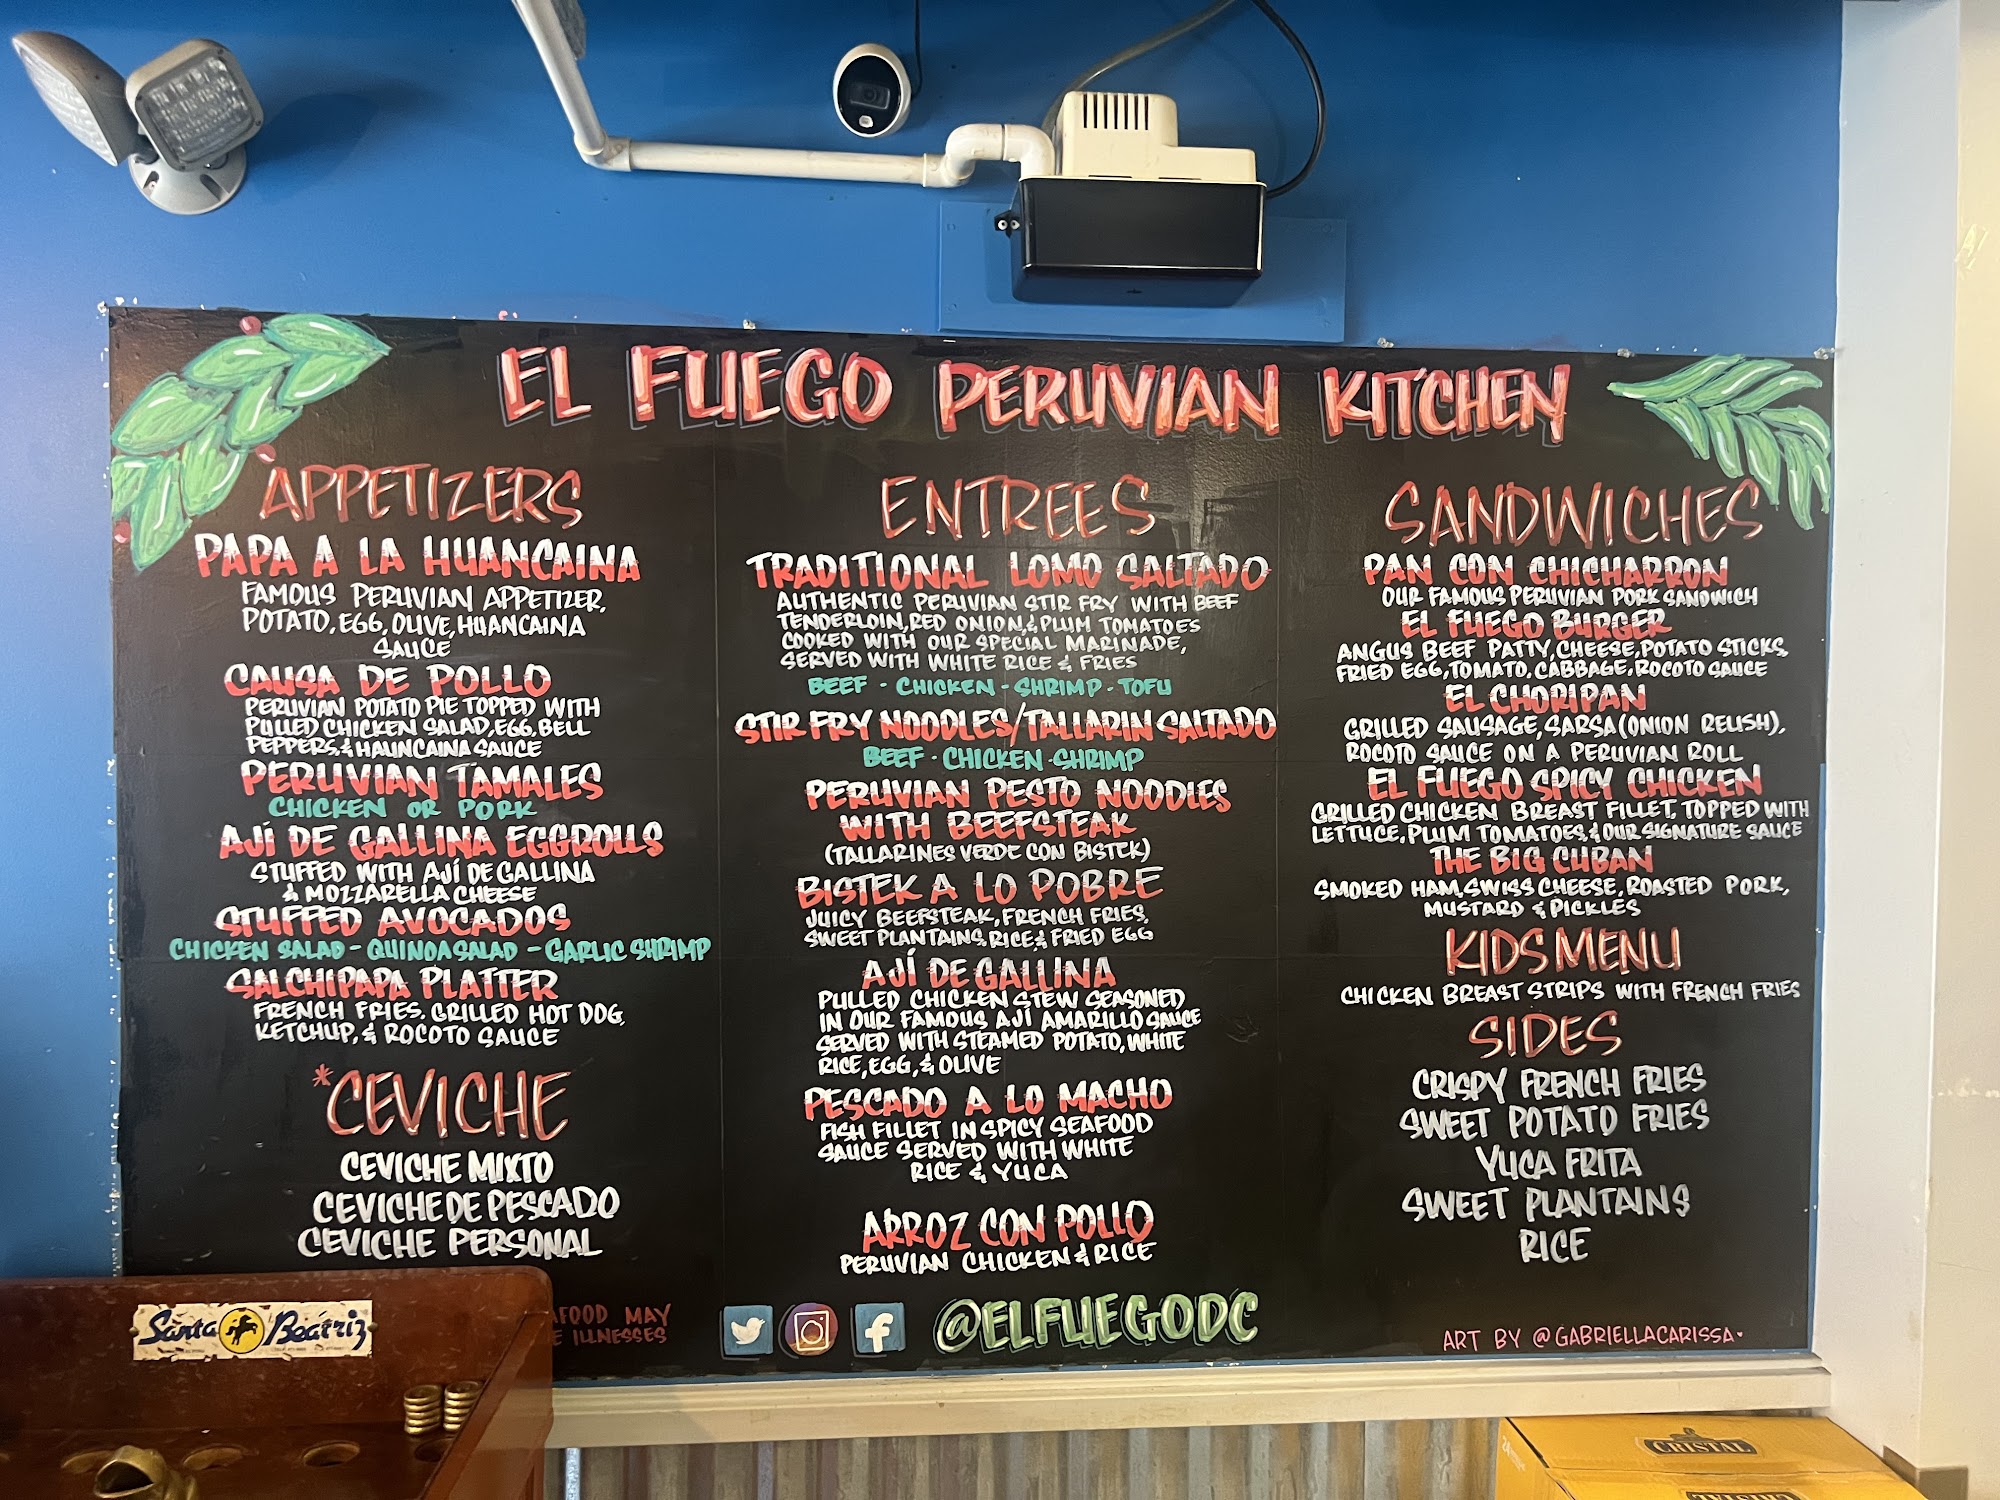 EL FUEGO PERUVIAN KITCHEN
APPETIZERS
PAPA A LA HUANCAINA
FAMOUS PERUVIAN APPETIZER,
POTATO, EGG, OLIVE, HUANCAINA
SAUCE
CAUSA DE POLLO
PERUVIAN POTATO PIE TOPPED WITH
PULLED CHICKEN SALAD, EGG, BELL
PEPPERS, & HAUNCAINA SAUCE
PERUVIAN TAMALES
CHICKEN OR PORK
AJÍ DE GALLINA EGGROLLS
STUFFED WITH AJÍ DE GALLINA
& MOZZARELLA CHEESE
STUFFED AVOCADOS
CHICKEN SALAD - QUINOA SALAD - GARLIC SHRIMP
SALCHIPAPA PLATTER
FRENCH FRIES, GRILLED HOT DOG,
KETCHUP, & ROCOTO SAUCE
*CEVICHE
CEVICHE MIXTO
CEVICHE DE PESCADO
CEVICHE PERSONAL
MAY
ILLNESSES
ENTREES
TRADITIONAL LOMO SALTADO
AUTHENTIC PERUVIAN STIR FRY WITH BEEF
TENDERLOIN, RED ONION, & PLUM TOMATOES
COOKED WITH OUR SPECIAL MARINADE,
SERVED WITH WHITE RICE & FRIES
BEEF - CHICKEN - SHRIMP - TOFU
STIR FRY NOODLES/TALLARIN SALTADO
BEEF - CHICKEN - SHRIMP
PERUVIAN PESTO NOODLES
WITH BEEFSTEAK
(TALLARINES VERDE CON BISTEK)
BISTEK A LO POBRE
JUICY BEEFSTEAK, FRENCH FRIES,
SWEET PLANTAINS, RICE, & FRIED EGG
AJÍ DE GALLINA
PULLED CHICKEN STEW SEASONED
IN OUR FAMOUS AJÍ AMARILLO SAUCE
SERVED WITH STEAMED POTATO, WHITE
RICE, EGG, & OLIVE
PESCADO A LO MACHO
FISH FILLET IN SPICY SEAFOOD
SAUCE SERVED WITH WHITE
RICE & YUCA
ARROZ CON POLLO
PERUVIAN CHICKEN & RICE
@ELFUEGODC
SANDWICHES
PAN CON CHICHARRON
OUR FAMOUS PERUVIAN PORK SANDWICH
EL FUEGO BURGER
ANGUS BEEF PATTY, CHEESE, POTATO STICKS,
FRIED EGG, TOMATO, CABBAGE, ROCOTO SAUCE
EL CHORIPAN
GRILLED SAUSAGE, SARSA (ONION RELISH),
ROCOTO SAUCE ON A PERUVIAN ROLL
EL FUEGO SPICY CHICKEN
GRILLED CHICKEN BREAST FILLET, TOPPED WITH
LETTUCE, PLUM TOMATOES, & OUR SIGNATURE SAUCE
THE BIG CUBAN
SMOKED HAM, SWISS CHEESE, ROASTED PORK,
MUSTARD & PICKLES
KIDS MENU
CHICKEN BREAST STRIPS WITH FRENCH FRIES
SIDES
CRISPY FRENCH FRIES
SWEET POTATO FRIES
YUCA FRITA
SWEET PLANTAINS
RICE
ART BY @GABRIELLACARISSA
Santa Beatriz
CRISTAL